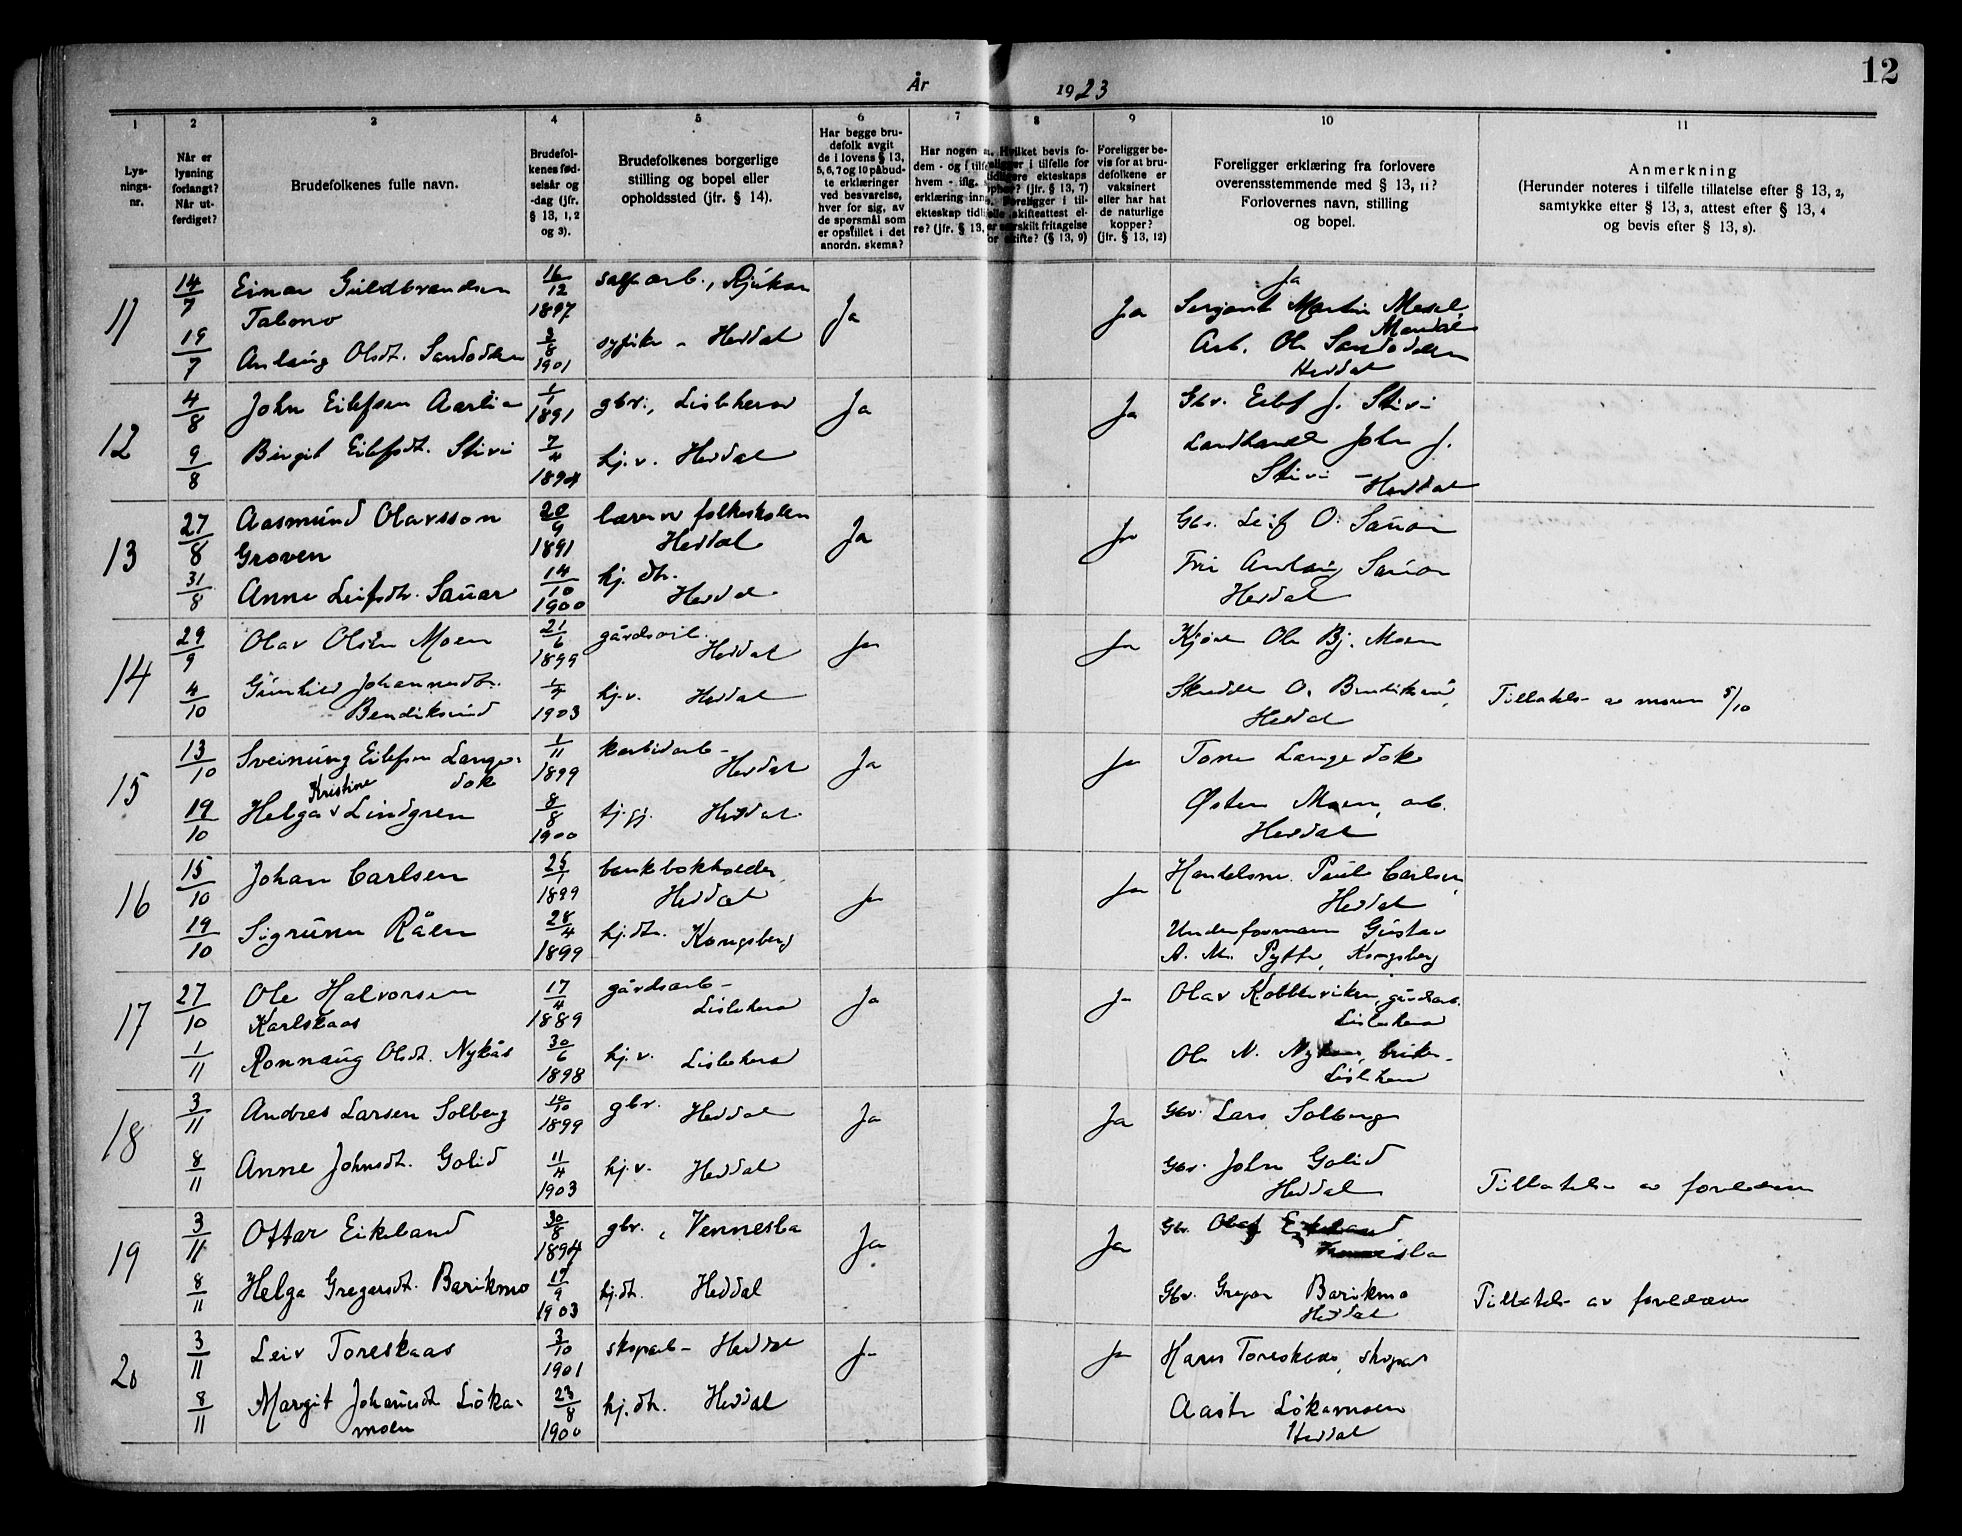 12
År 1923
1
Lys-
nings-
nr.
2
Når er
lysning
forlangt?
Når ut-
ferdiget?
3
Brudefolkenes fulle navn.
4
Brudefol-
kenes fød-
selsår og
-dag (jfr.
§ 13, 1, 2
og 3).
5
Brudefolkenes borgerlige
stilling og bopel eller
opholdssted (jfr. § 14).
6
Har begge bru-
defolk avgit
de i lovens § 13,
5, 6, 7 og 10 påbud-
te erklæringer
ved besvarelse,
hver for sig, av
de spørsmål som
er opstillet i det
anordn. skema?
7
Har nogen a
dem - og i tilfe
hvem - iflg.
erklæring inng
ekteskap tidli
re? (jfr. § 13,
8
Hvilket bevis fo-
religger i tilfelle for
tidligere ekteskaps
ophør? (jfr. § 13, 7)
Foreligger i til-
felle skifteattest el-
ler særskilt fritagelse
for skifte? (§ 13, 9)
9
Foreligger be-
vis for at bru-
defolkene er
vaksinert
eller har hat
de naturlige
kopper?
(jfr. § 13, 12)
10
Foreligger erklæring fra forlovere
overensstemmende med § 13, 11?
Forlovernes navn, stilling
og bopel.
11
Anmerkning
(Herunder noteres i tilfelle tillatelse efter § 13, 2,
samtykke efter § 13, 3, attest efter § 13, 4
og bevis efter § 13, 8).
11
14/7
Einar Guldbrandsen
Talmo
16/12 1897
arb., Rjukan
Ja
Ja
Ja
Serjant Martin
19/7
Anlaug Olsdt.
3/8 1901
Heddal
Arb. Ole
Heddal
12
4/8
John Eilefsen Aarlia
1/1 1891
gbr., Lisleherad
Ja
Ja
Gbr. Eilef J. Stivi
9/8
Birgit Eilefsdt. Stivi
7/4 1894
hj.v. Heddal
Landhandl John J.
Stivi - Heddal
13
27/8
Aasmund Olavsson
Groven
20/9 1891
lærer v folkeskolen
Heddal
Ja
Ja
Gbr. Leif O. Sauar
31/8
Anne Leifsdtr. Sauar
14/10 1900
hj. dtr.
Heddal
Fru Anlaug Sauar
Heddal
14
29/9
Olav Olsen Moen
21/6 1899
gårdsarb.
Heddal
Ja
Ja
Ole Bj. Moen
4/10
Gunhild Johannesdtr.
Bendiksrud
1903
hj.v. Heddal
O. Bendiksrud,
Heddal
Tillatelse av moren 5/10
15
13/10
Sveinung Eilefsen Lange-
dok
1/11 1899
karbidarb-
Heddal
Ja
Ja
Tone Langedok
19/10
Kristine
Helga v Lindgren
8/8 1900
tj.gj. Heddal
Østen Moen, arb.
Heddal
16
15/10
Johan Carlsen
25/1 1899
bankbokholder,
Heddal
Ja
Ja
Handelsm. Paul Carlsen,
Heddal
19/10
Sigrunn Råen
28/4 1899
hj.dtr. Kongsberg
Underformann Gustav
A. M. Pytte, Kongsberg
17
27/10
Ole Halvorsen
Karlskaas
17/4 1889
gårdsarb-
Lisleherad
Ja
Ja
Olav Kobberviken, gårdsarb.
Lisleherad
1/11
Ronnaug Olsdt. Nykås
30/6 1898
hj.v. Lisleherad
Ole N.
Lisleherad
18
3/11
Andres Larsen Solberg
10/10 1899
gbr. Heddal
Ja
Ja
Gbr. Lars Solberg
8/11
Anne Johnsdt. Golid
11/4 1903
hj.v. Heddal
Gbr. John Golid
Heddal
Tillatelse av foreldrene
19
3/11
Ottar Eikeland
30/8 1894
gbr., Vennesla
Ja
Ja
Gbr. Olaf Eikeland
Vennesla
8/11
Helga Gregarsdt. Barikmo
17/9 1903
hj.dtr. Heddal
Gbr. Gregar Barikmo
Heddal
Tillatelse av foreldrene
20
3/11
Leiv Toreskaas
3/10 1901
skoparb- Heddal
Ja
Ja
Hans Toreskaas,
8/11
Margit Johansdt Løka-
moen
23/8 1900
hj.dtr. Heddal
Løkamoen
Heddal